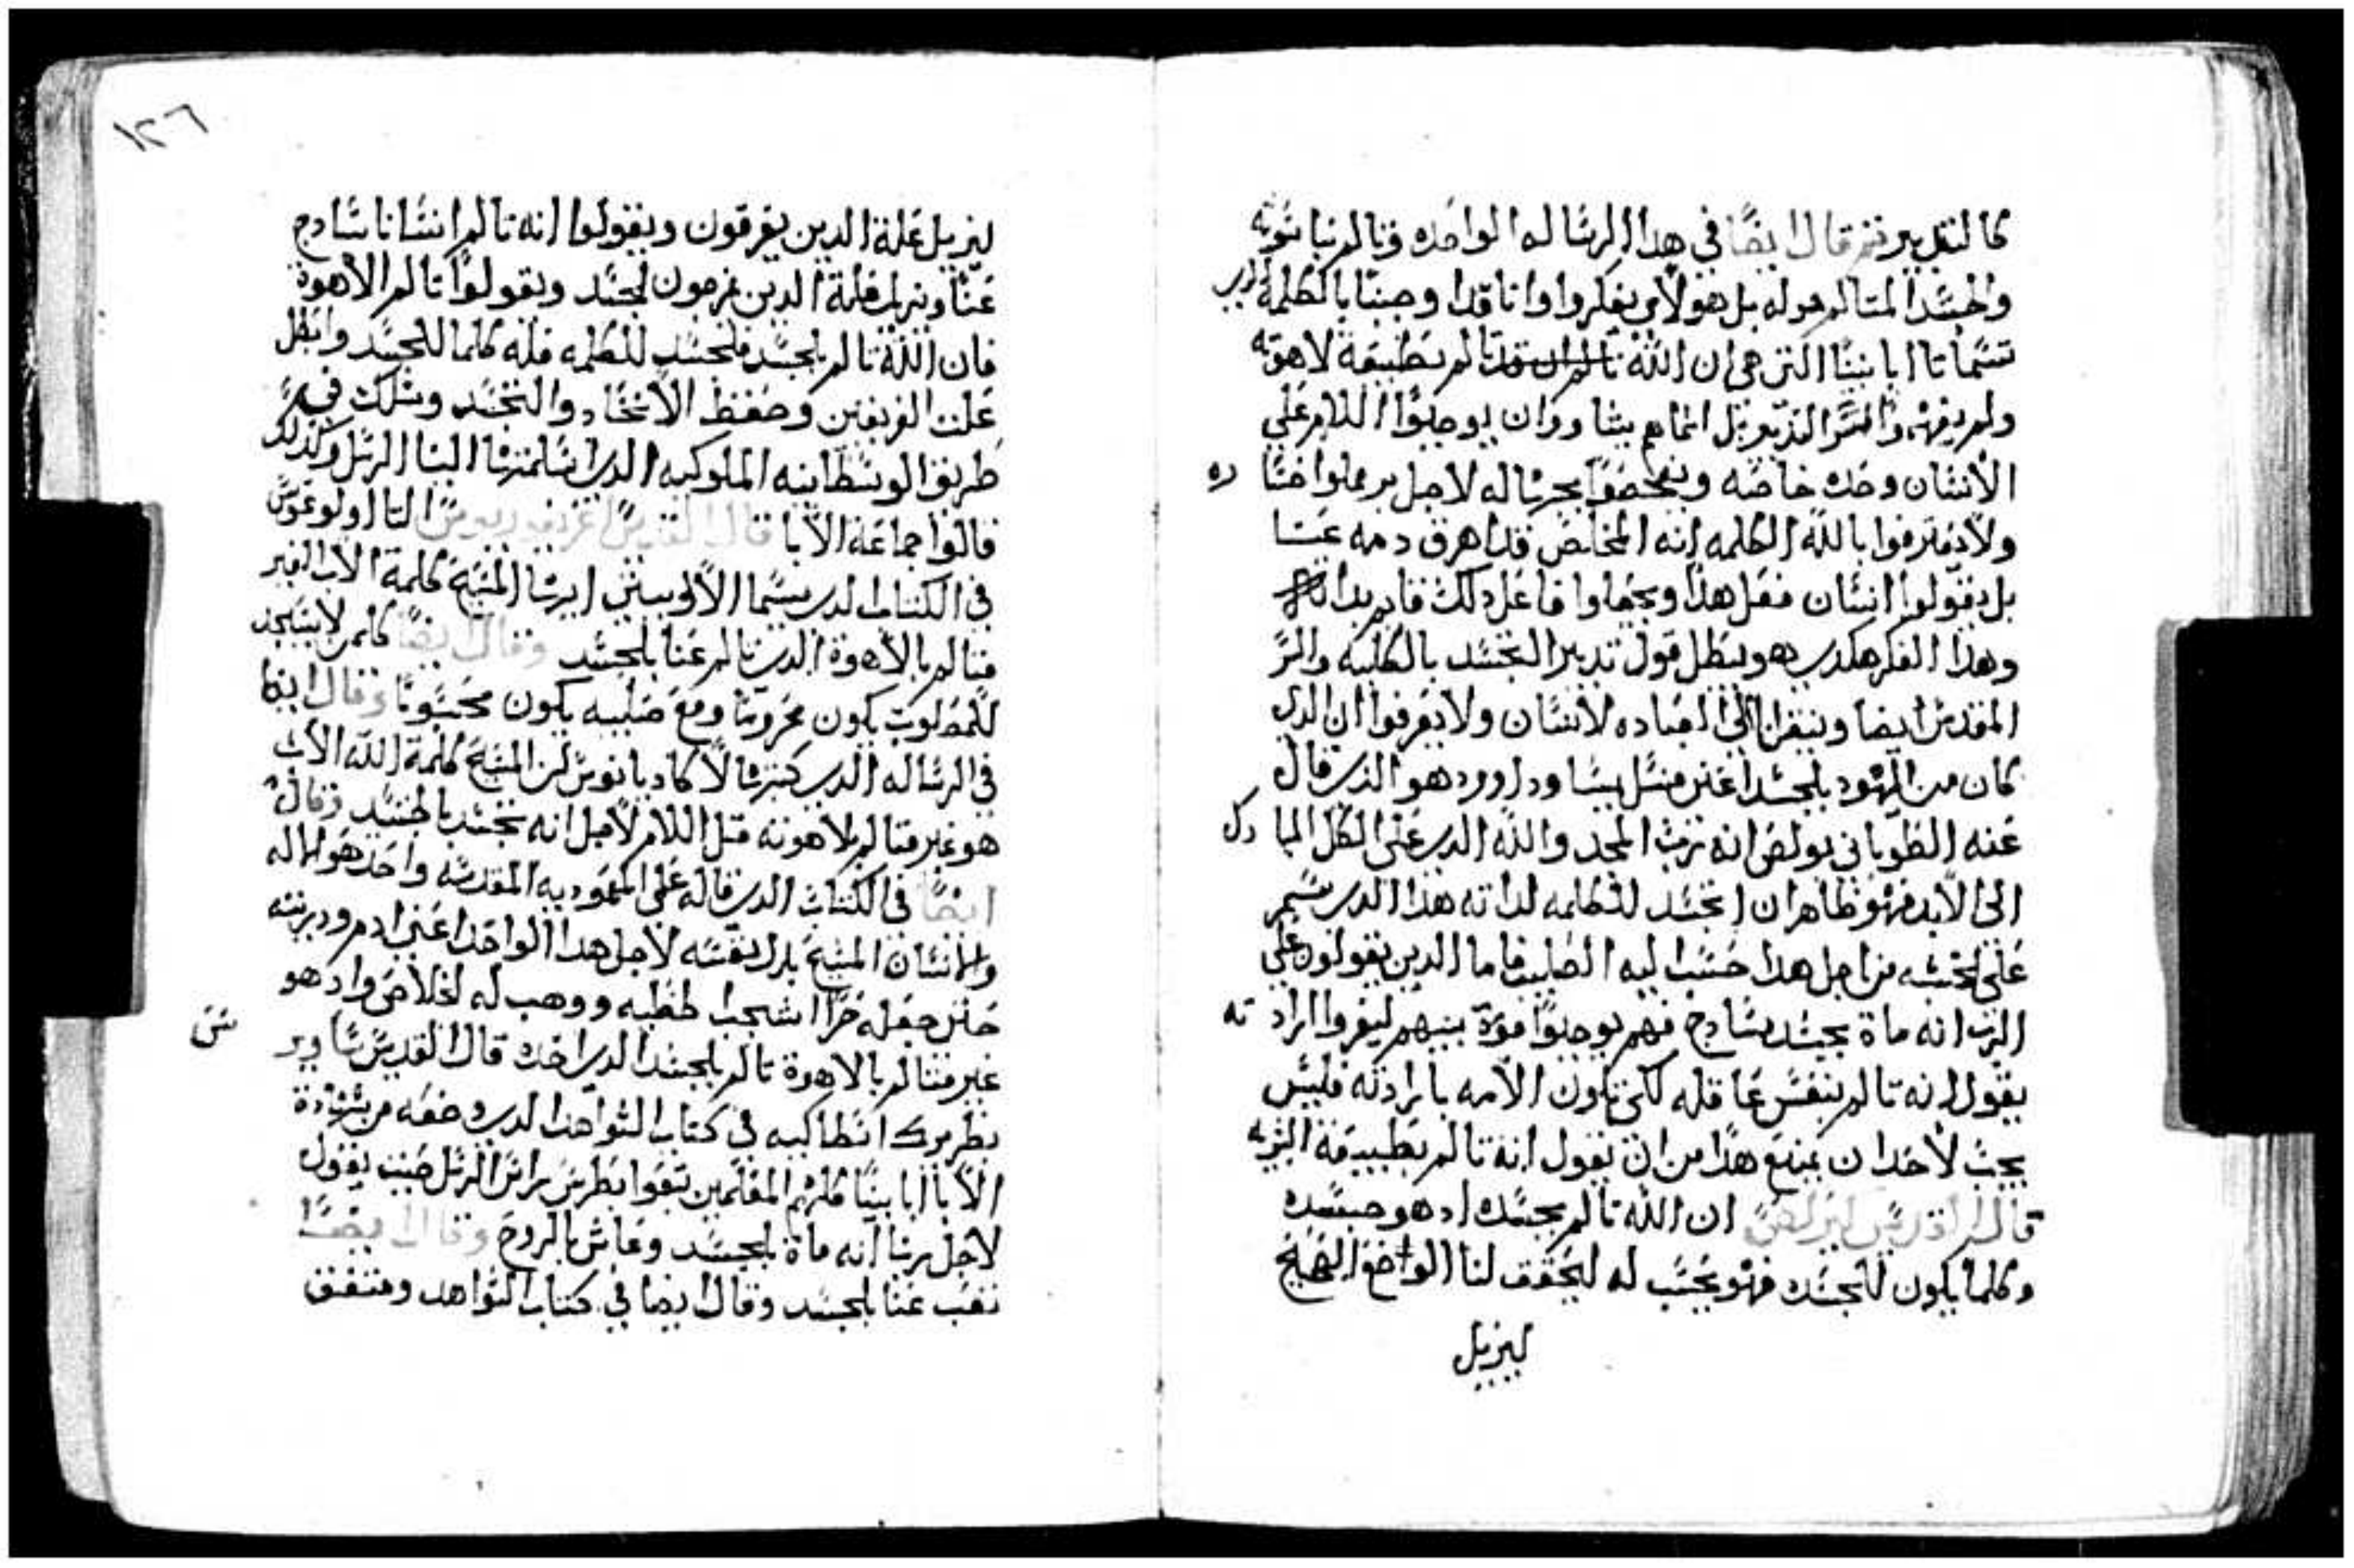 كالتقليد ثم قال ايضًا في هذا الرساله الواحده وتالم بناسوته
والجسد المتالم هو له بل هولاي يفكروا وانا قدا وصبنا بالكلمة الدي
تسما تا ابا نينا التي هي ان الله تالم بطبيعة لاهوته
ولم يفهموا السر التدبير بل انما هم يشا وروان يوجبوا اللام علي
الانسان وحده خاصه وينحصوا بحرساله لاجل يرملوا حسًا ده
ولا يعترفوا بالله الكلمه انه المخلص قد اهرق دمه عنا
بل يقولوا انسان فعل هذا ويجعلوا فاعل دلك قايم بداته
وهذا الفكر هكدي هو يبطل قول تدبير التجسد بالكلية والسر
المقدس ايضا وينقل نا الي العباده لانسان ولا يعرفوا ان الدي
كان من اليهود بالجسد اعني من نسل يسا وداوود هو الذي قال
عنه الطوباني بولص انه رب المجد والله الدي علي الكل المبا رك
الي الابد فهو ظاهر ان اتجسد للكلمه لداته هذا الدي سمر
علي الخشبه من اجل هدا حسب ليه الصليب فاما الدين يقولون علي
الرب انه ماة بجسد سادج فهم يوجبوا قوة بينهم ليفروا اراد ته
يقول انه تالم بنفس عاقله لكي تكون الالامه بارادته فليس
يجب لاحد ان يمنع هدا من ان يقول انه تالم بطبيعة البشريه
قال اقدس كيرلص ان الله تالم بجسده اد هو جسده
وكلما يكون للجسده فهو يحسب له ليحقق لنا الواضح الصحيح
ليزيل
١٢٦
ليزيل علة الدين يفرقون ويقولوا انه تالم انسانا سادج
عنا ويزيل علة الدين يزعمون لجسد ويقولوا تالم الاهوة
فان الله تالم بالجسد فلجسد للكلمه فله كلما للجسد وابطل
علت الفريقين وحفظ الاتحاد والتجسد وسلك في
طريق الوسطانيه الملوكيه الدي سلمتها الينا الرسل وكذلك
قالوا جماعة الابا قال القديس غريغوريوس التا اولوغوس
في الكتاب الدي يسما الاوبيسي ايرسا المسيح كلمة الاب الغير
متالم بالاهوة الدي تالم عنا بالجسد وقال ايضًا كلمن لا يسجد
للمصلوب يكون محرومًا ومع صلبيه يكون محسوبًا وقال ايضا
في الرساله الدي كتبها لاكاديانوس لان المسيح كلمة الله الاب
هو غير متالم بلاهوته قبل اللام لاجل انه تجسد بالجسد وقال
ايضًا في الكتاب الدي قاله علي المعموديه المقدسه واحد هو الاله
والانسان المسيح بدل نفسه لاجل هدا الواحد اعني ادم ودريته
حلن جعله حرا اشجب لخطيه ووهب له الخلاص واد هو
غير متالم بالاهوة تالم بالجسد الدي اخده قال القديس ساوير س
بطريرك انطاكيه في كتاب الشواهد الدي وضعه من شهادة
الابا ابا نينا كلهم المعلمين تبعوا بطرس راس الرسل حيث يقول
لاجل ربنا انه ماة بالجسد وعاش بالروح وقال ايضًا
تعب عنا بالجسد وقال ايضا في كتاب الشواهد ومتفق